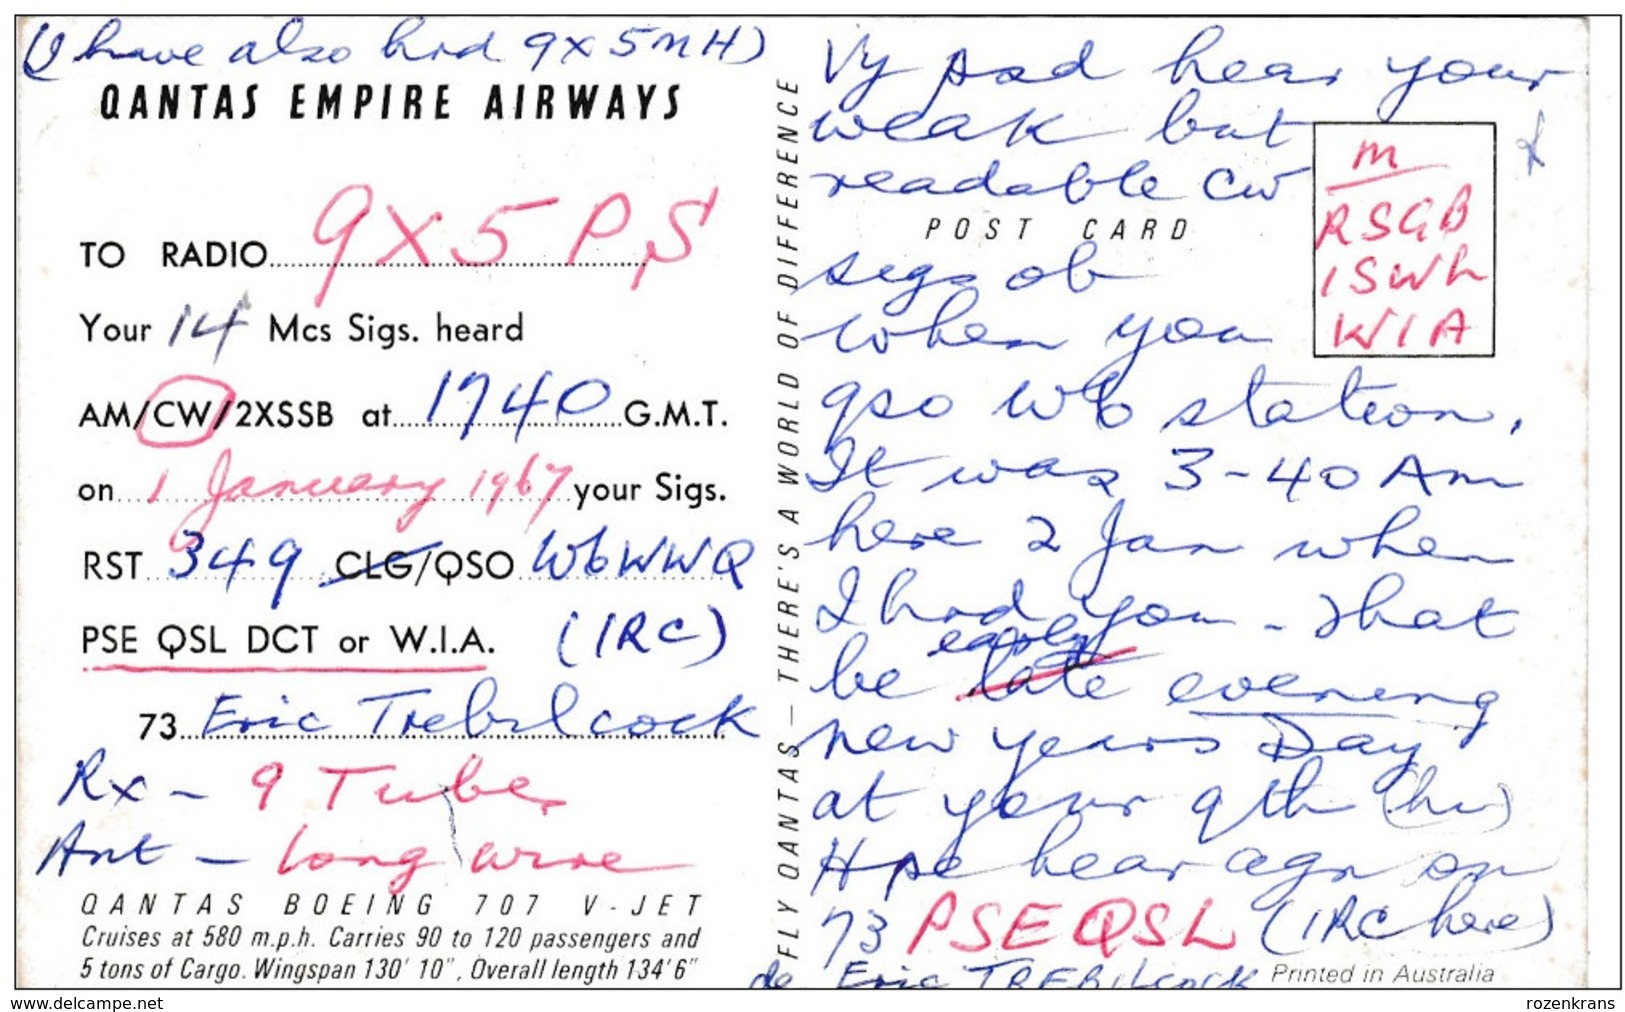 (I have also hrd 9X5MH)
QANTAS EMPIRE AIRWAYS
TO RADIO 9X5PS
Your 14 Mcs Sigs. heard
AM/CW/2XSSB at 1740 G.M.T.
on 1 January 1967 your Sigs.
RST 349 CLG/QSO W6WWQ
PSE QSL DCT or W.I.A. (IRC)
73 Eric Trebilcock
Rx - 9 Tube
Ant - long wire
QANTAS BOEING 707 V-JET
Cruises at 580 m.p.h. Carries 90 to 120 passengers and
5 tons of Cargo. Wingspan 130' 10", Overall length 134'6"
FLY QANTAS — THERE'S A WORLD OF DIFFERENCE
Vy psd hear your
weak but
readable CW
POST CARD
sigs ob
when you
qso W6 station.
It was 3-40 Am
here 2 Jan when
I hrd you - That
be early late evening
new years Day
at your qth (hi)
Hpe hear agn sn
73 PSE QSL (IRC here)
de Eric TREBILCOCK
Printed in Australia
m
RSGB
ISWL
WIA
delcampe.net
rozenkrans